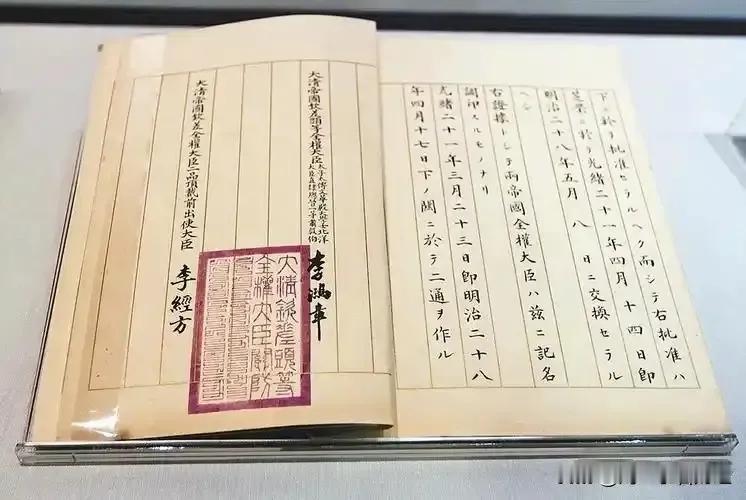 下ニ於テ批准セラルヘク而シテ右批准ハ
芝罘ニ於テ光緒二十一年四月十四日即
明治二十八年五月八日ニ交換セラル
ヘシ
右證據トシテ兩帝國全權大臣ハ茲ニ記名
調印スルモノナリ
光緒二十一年三月二十三日即明治二十八
年四月十七日下ノ關ニ於テ二通ヲ作ル
大清帝國欽差頭等全權大臣
太子太傅文華殿大學士北洋
大臣直隸總督一等肅毅伯
李鴻章
大清帝國欽差全權大臣二品頂戴前出使大臣
李經方
大清欽差頭等
全權大臣關防